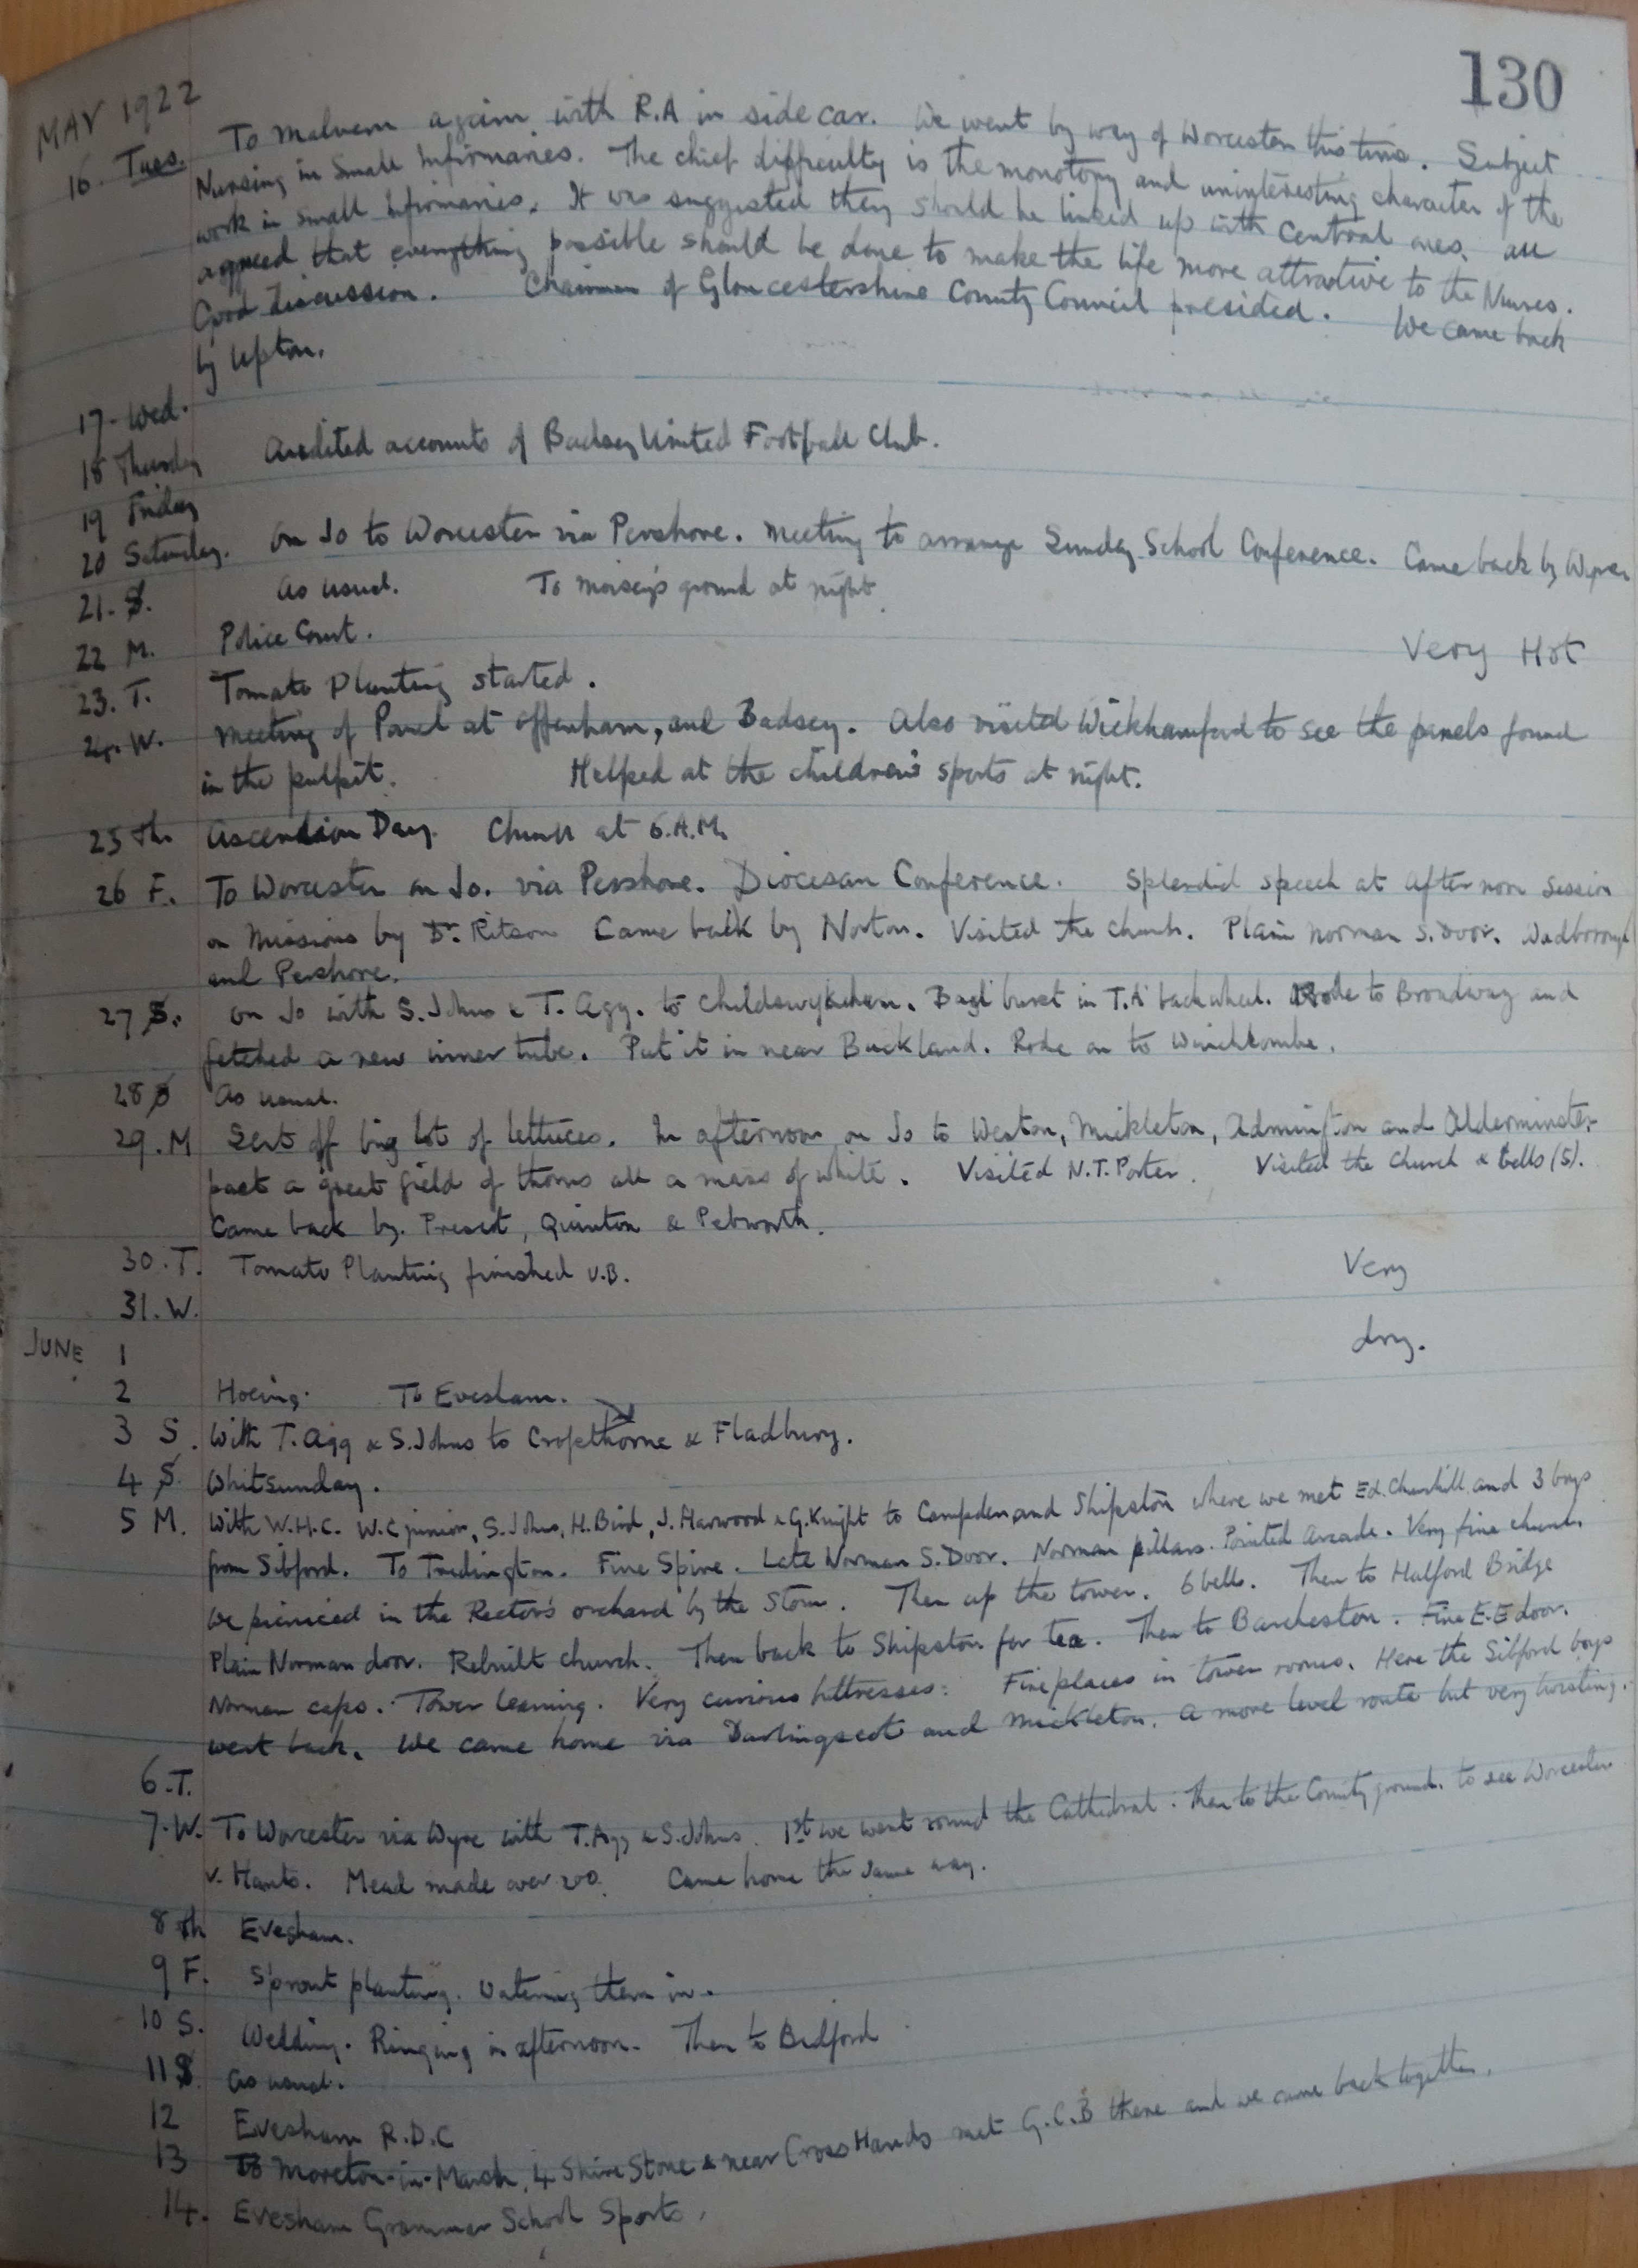 130
MAY 1922
16. Tues. To Malvern again with R.A in side car. We went by way of Worcester this time. Subject
Nursing in Small Infirmaries. The chief difficulty is the monotony and uninteresting character of the
work in small Infirmaries. It was suggested they should be linked up with Central ones. all
agreed that everything possible should be done to make the life more attractive to the Nurses.
Good discussion. Chairman of Gloucestershire County Council presided. We came back
by Upton.
17. Wed.
18 Thursday Audited accounts of Badsey United Football Club.
19 Friday
20 Saturday. On Jo to Worcester via Pershore. Meeting to arrange Sunday School Conference. Came back by Wyre
21. S. As usual. To Moisey's ground at night.
22 M. Police Court. Very Hot
23. T. Tomato Planting started.
24. W. Meeting of Panel at Offenham, and Badsey. Also visited Wickhamford to see the panels found
in the pulpit. Helped at the children's sports at night.
25 Th. Ascension Day. Church at 6.A.M.
26 F. To Worcester on Jo. via Pershore. Diocesan Conference. Splendid speech at afternoon session
on Missions by Dr. Ritson Came back by Norton. Visited the church. Plain Norman S. Door. Wadborough
and Pershore.
27 S. On Jo with S. Johns & T. Agg. to Childswykeham. Bad burst in T.A' back wheel. Rode to Broadway and
fetched a new inner tube. Put it in near Buckland. Rode on to Winchcombe.
28 S As usual.
29. M Sent off big lot of lettuces. In afternoon on Jo to Weston, Mickleton, Admington and Alderminster
past a great field of thorns all a mass of white. Visited N.T. Porter. Visited the Church & bells (5).
Came back by Prescot, Quinton & Pebworth.
30. T. Tomato Planting finished V.B. Very
31. W.
JUNE 1 dry.
2 Hoeing. To Evesham.
3 S. With T. Agg & S. Johns to Cropthorne & Fladbury.
4 S. Whitsunday.
5 M. With W.H.C. W.C junior, S. Johns, H. Bird, J. Harwood & G. Knight to Campden and Shipston where we met Ed. Churchill and 3 boys
from Sibford. To Tredington. Fine Spire. Late Norman S. Door. Norman pillars. Pointed Arcade. Very fine church.
We picniced in the Rector's orchard by the Stour. Then up the tower. 6 bells. Then to Halford Bridge
Plain Norman door. Rebuilt church. Then back to Shipston for tea. Then to Barcheston. Fine E.E door.
Norman caps. Tower leaning. Very curious buttresses: Fireplaces in tower rooms. Here the Sibford boys
went back. We came home via Darlingscot and Mickleton. A more level route but very twisting.
6. T.
7. W. To Worcester via Wyre with T. Agg & S. Johns. 1st we went round the Cathedral. Then to the County ground. to see Worcester
v. Hants. Mead made over 200. Came home the same way.
8 Th Evesham.
9 F. Sprout planting. Watering them in.
10 S. Wedding. Ringing in afternoon. Then to Bidford
11 S. As usual.
12 Evesham R.D.C
13 To Moreton-in-Marsh, 4 Shire Stone & near Cross Hands met G.C.B there and we came back together.
14. Evesham Grammar School Sports.